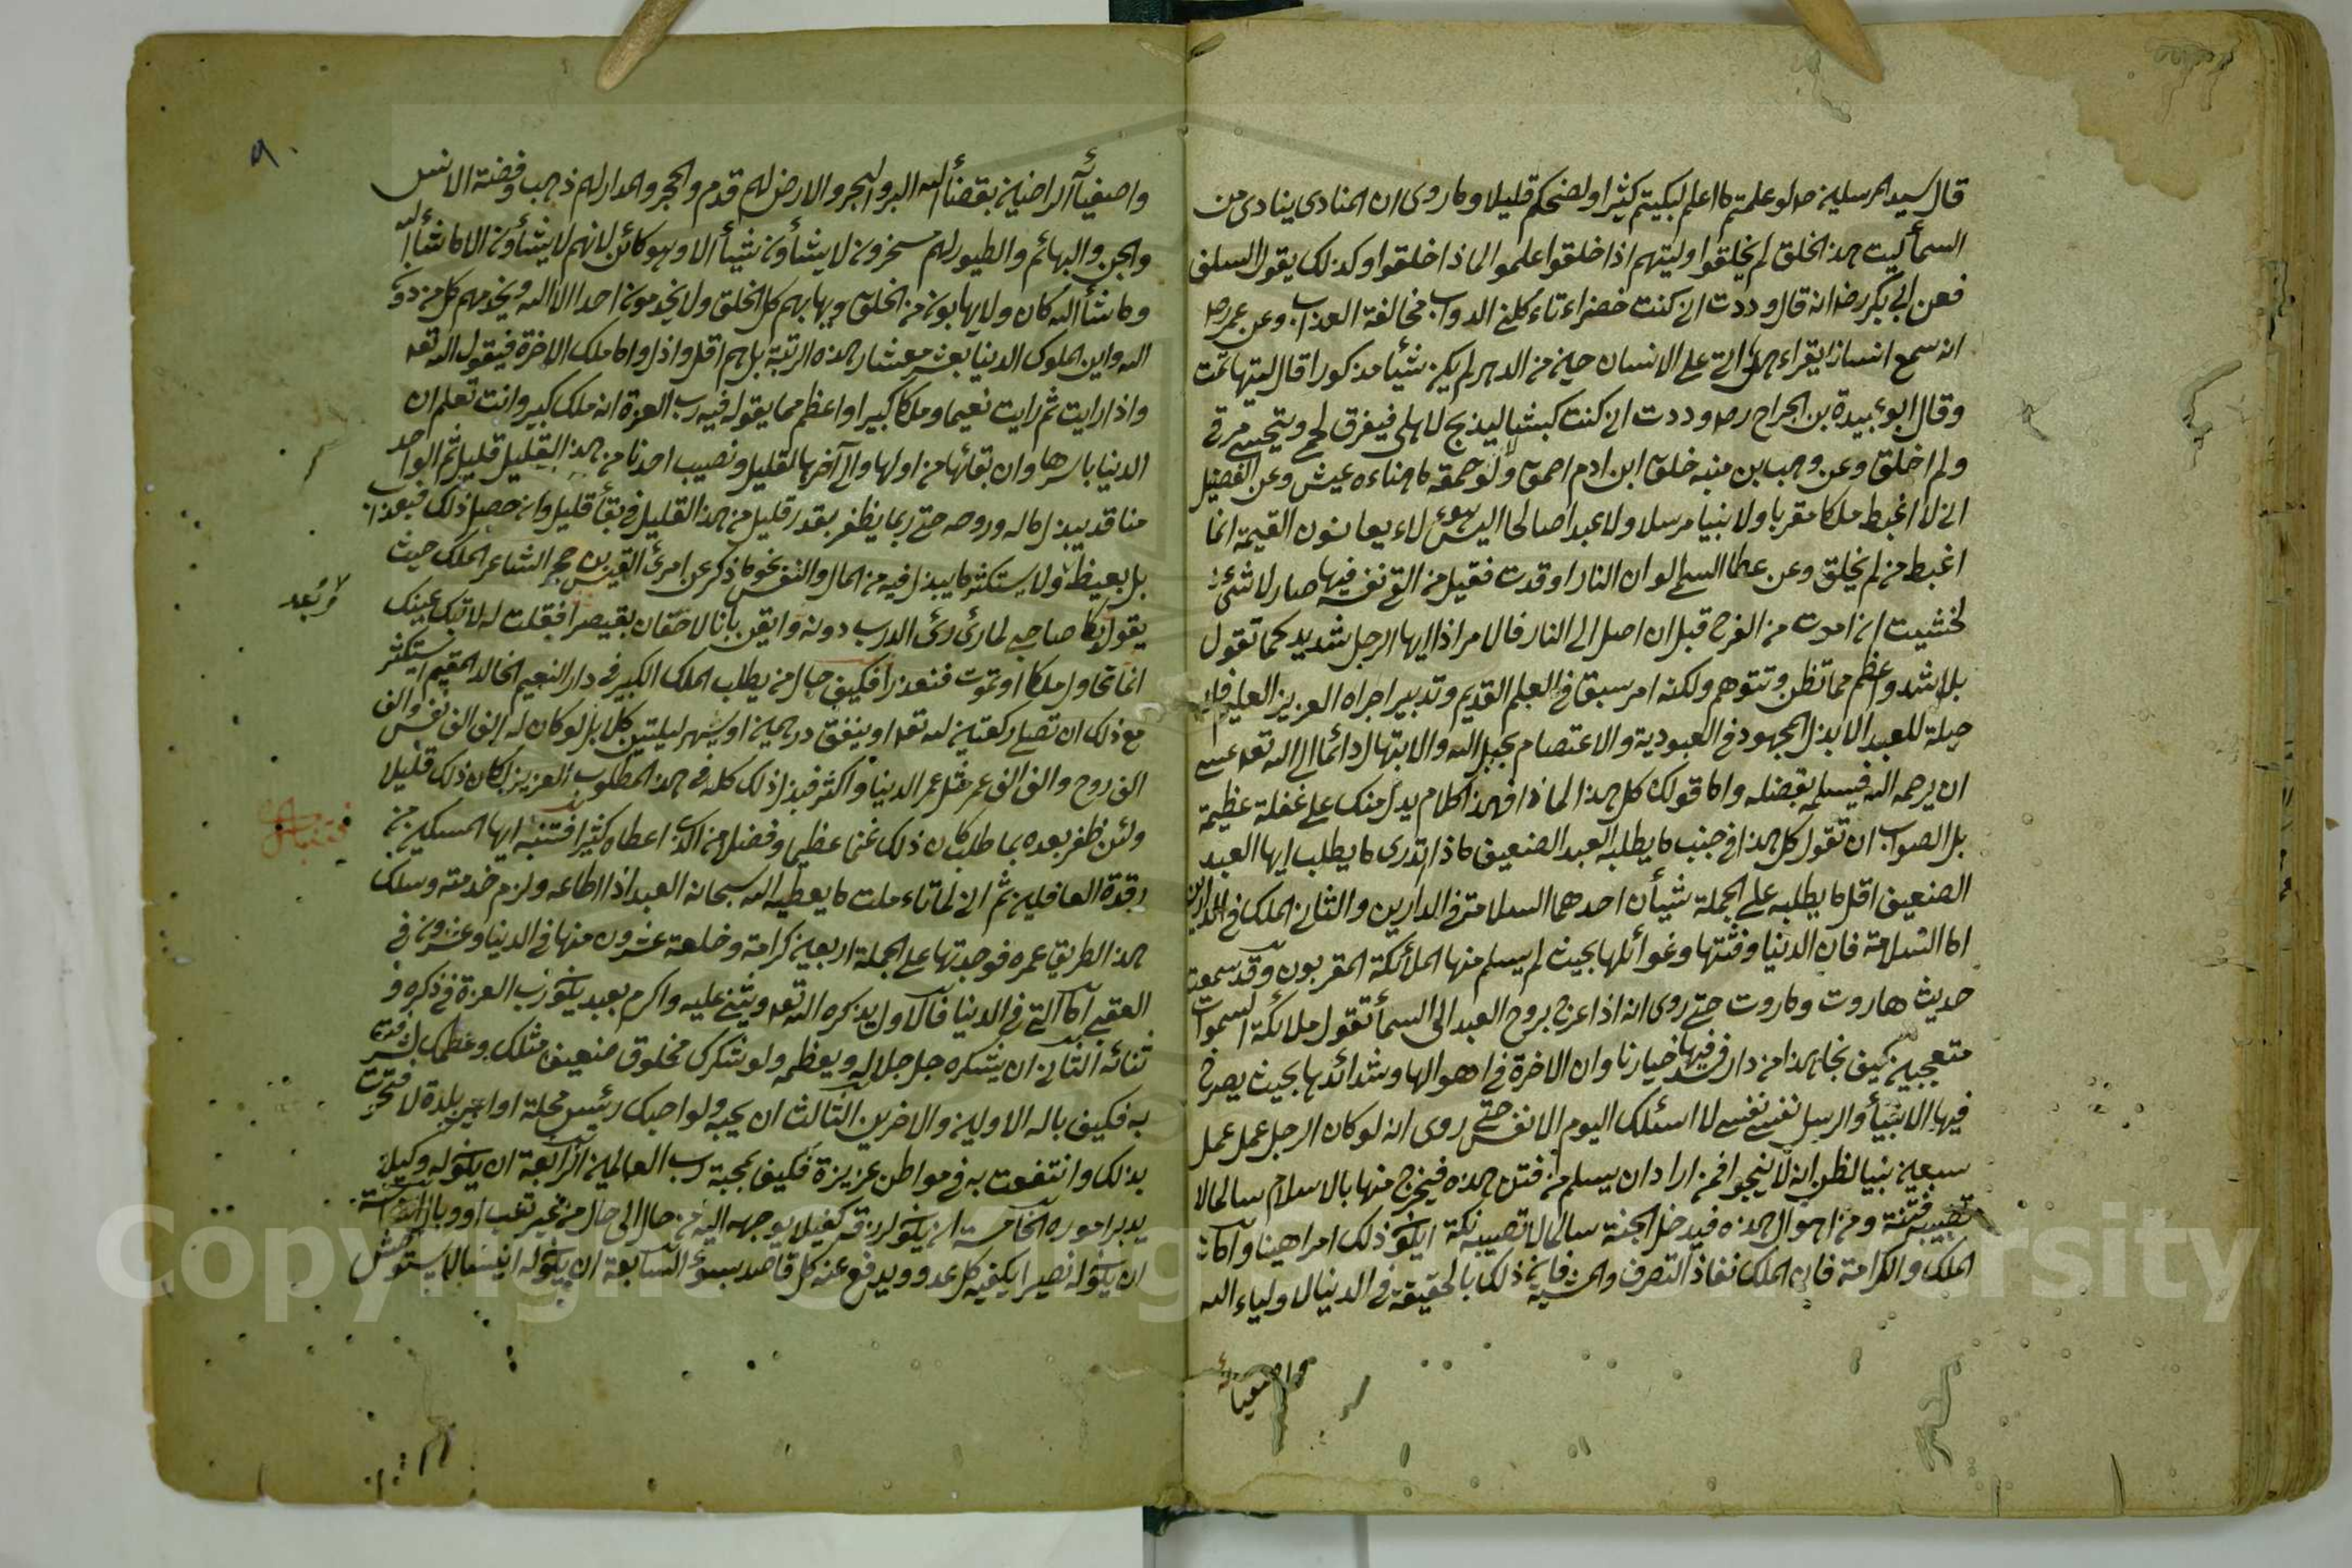 قال سيد المرسلين صلو علمتم ما اعلم لبكيتم كثيرا ولضحكم قليلا وما روى ان المنادى ينادى من
السمأ ليت هذا الخلق لم يخلقوا وليتهم اذا خلقوا علموا لماذا خلقوا وكذلك يقول السلف
فعن ابى بكر رضـ انه قال وددت انى كنت خضراء تاء كلنى الدواب مخالفة العذاب وعن عمر رضـ
انه سمع انسانا يقراء هل اتى على الانسان حين من الدهر لم يكن شيأ مذكورا قال ليتها تمت
وقال ابو عبيدة بن الجراح رضـ وددت انى كنت كبشا ليذبح لاهلى فيفرق لحمى ويتحسى مرقى
ولم اخلق وعن وهب بن منبه خلق ابن ادم احمق ولولا حمقه ما هناءه عيش وعن الفضيل
انى لا اغبط ملكا مقربا ولا نبيا مرسلا ولا عبدا صالحا اليس هؤلاء يعاينون القيمة انما
اغبط من لم يخلق وعن عطا السلمى لو ان النار اوقدت فقيل من القى نفسه فيها صار لا شئ
لخشيت ان اموت من الفرح قبل ان اصل الى النار فالامر اذا ايها الرجل شديد كما تقول
بل اشد واعظم مما تظن وتتوهم ولكنه امر سبق فى العلم القديم وتدبير اجراه العزيز العليم فلا
حيلة للعبد الا بذل المجهود فى العبودية والاعتصام بحبل الله والابتهال دائما الى الله تعـ عسى
ان يرحمه الله فيسلمه بفضله واما قولك كل هذا لماذا فهذا كلام يدل منك على غفلة عظيمة
بل الصواب ان تقول كل هذا فى جنب ما يطلبه العبد الضعيف ماذا تدرى ما يطلب ايها العبد
الضعيف اقل ما يطلبه على الجملة شيأن احدهما السلامة فى الدارين والثانى الملك فى الدارين
اما السلامة فان الدنيا وفتنتها وغوائلها بحيث لم يسلم منها الملأئكة المقربون وقد سمعت
حديث هاروت وماروت حتى روى انه اذا عرج بروح العبد الى السمأ تقول ملائكة السموات
متعجبين كيف نجا هذا من دار فسد فيها خيارنا وان الاخرة فى اهوالها وشدائدها بحيث يصرخ
فيها الانبيأ والرسل نفسى نفسى لا اسئلك اليوم الا نفسى حتى روى انه لو كان الرجل عمل عمل
سبعين نبيا لظن انه لا ينجو فمن اراد ان يسلم من فتن هذه فيخرج منها بالاسلام سالما لا
تصيبه فتنة ومن اهوال هذه فيدخل الجنة سالما لا تصيبه نكبة ايكون ذلك امرا هينا واما
الملك والكرامة فان الملك نفاذ التصرف والمشية فان ذلك بالحقيقة فى الدنيا لاولياء الله
واصفيائه
واصفيأئه الراضين بقضأ الله البر والبحر والارض لهم قدم والحجر والمدر لهم ذهب وفضة الانس
والجن والبهائم والطيور لهم مسخرون لا يشأون شيأ الا وهو كائن لانهم لا يشأون الا ما شأ الله
وما شأ الله كان ولا يهابون من الخلق ويهابهم كل الخلق ولا يخدمون احدا الا الله ويخدمهم كل من دون
الله واين الملوك الدنيا بعشر معشار هذه الرتبة بل هم اقل واذل واما ملك الاخرة فيقول الله تعـ
واذا رايت ثم رايت نعيما وملكا كبيرا واعظم مما يقوله فيه رب العزة انه ملك كبير وانت تعلم ان
الدنيا باسرها وان بقائها من اولها والى آخرها لقليل ونصيب احدنا من هذا القليل قليل ثم الواحد
منا قد يبذل ماله وروحه حتى ربما يظفر بقدر قليل من هذا القليل فى بقأ قليل وان حصل ذلك فيعذر
بل يغبط ولا يستكثر ما يبذل فيه من المال والنفس نحو ما ذكر عن امرئ القيس بن حجر الشاعر الملك حيث
يقول بكا صاحبى لما رئ رئ الدرب دونه وايقن بانا لاحقان بقيصرا فقلت له لا تبك عينك
انما نحاول ملكا او نموت فنعذرا فكيف حال من يطلب الملك الكبير فى دار النعيم الخالد المقيم ايستكثر
مع ذلك ان تصلى ركعتين لله تعـ او ينفق درهمين او يسهر ليلتين كلا بل لو كان له الف الف نفس والف
الف روح والف الف عمر مثل عمر الدنيا واكثر فبذل ذلك كله فى هذا المطلوب العزيز لكان ذلك قليلا
ولئن ظفر بعده بما طلب كان ذلك غنما عظيما وفضلا من الذى اعطاه كثيرا فتنبه ايها المسكين من
رقدة الغافلين ثم انى لما تاءملت ما يعطيه الله سبحانه العبد اذا اطاعه ولزم خدمته وسلك
هذا الطريق عمره فوجدتها على الجملة اربعين كرامة وخلعة عشرون منها فى الدنيا وعشرون فى
العقبى اما التى فى الدنيا فالاول يذكره الله تعـ ويثنى عليه واكرم بعبد يكون رب العزة فى ذكره و
ثنائه الثانى ان يشكره جل جلاله ويعظمه ولو شكرك مخلوق ضعيف مثلك وعظمك لشرفت
به فكيف باله الاولين والاخرين الثالث ان يحبه ولو احبك رئيس محلة او امير بلدة لافتخرت
بذلك وانتفعت به فى مواطن عزيزة فكيف بمحبة رب العالمين الرابعة ان يكون له وكيلا
يدبر اموره الخامسة ان يكون لرزقه كفيلا يوجهه اليه من حال الى حال من غير تعب او وبال السادسة
ان يكون له نصيرا يكفيه كل عدو ويدفع عنه كل قاصد بسوء السابعة ان يكون له انيسا لا يستوحش
Copyright © King Saud University